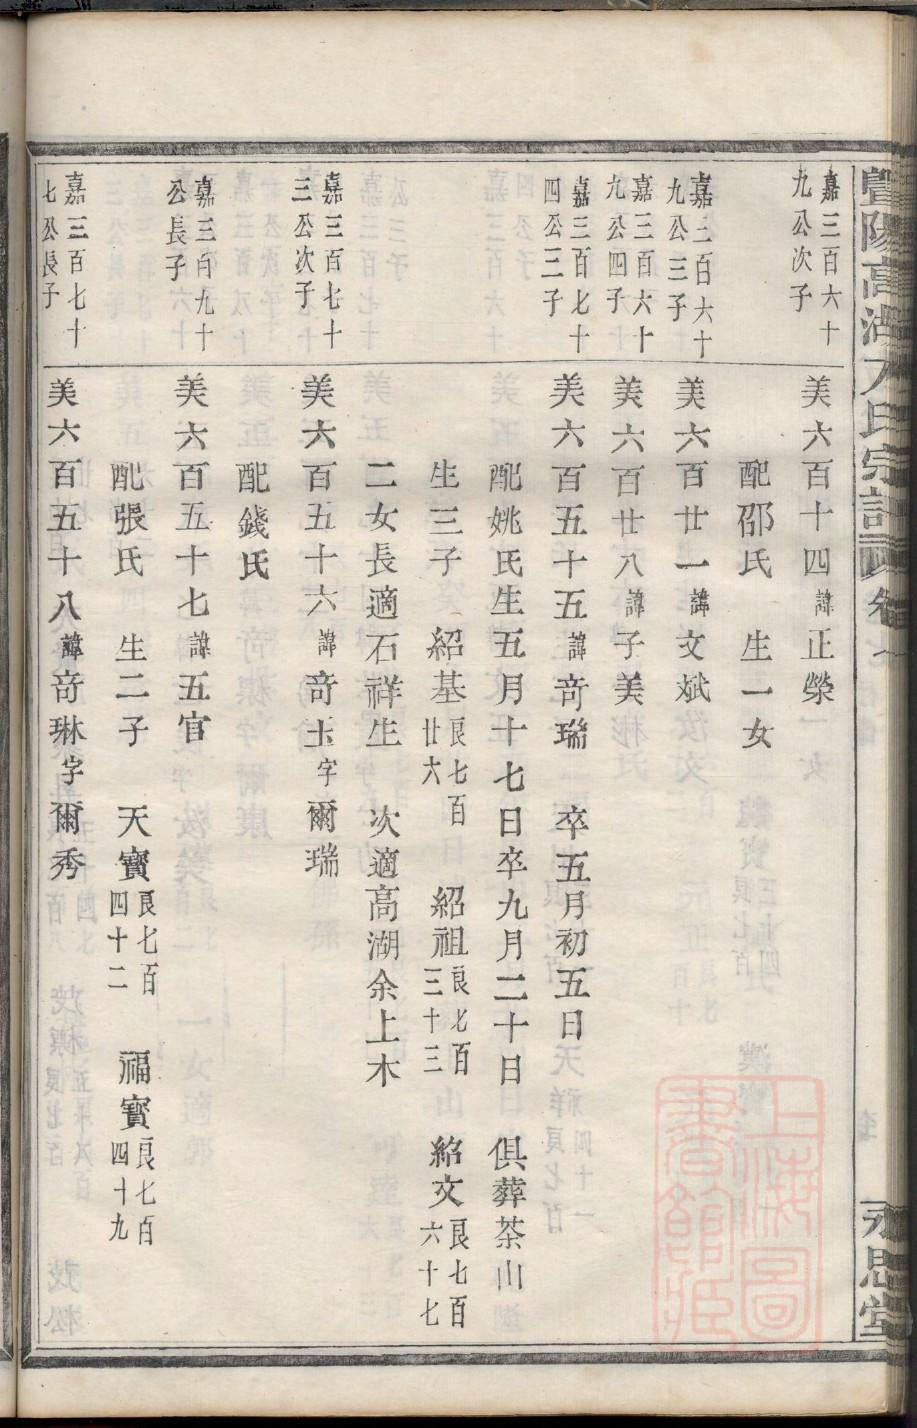 暨陽高湖人氏宗譜 卷七 永思堂
嘉三百六十九公次子
美六百十四諱正榮
配邵氏 生一女
嘉三百六十九公三子
美六百廿一諱文斌
嘉三百六十九公四子
美六百廿八諱子美
嘉三百七十四公三子
美六百五十五諱竒瑞 卒五月初五日
配姚氏生五月十七日卒九月二十日 俱葬茶山
生三子 紹基良七百廿六 紹祖良七百三十三 紹文良七百六十七
二女長適石祥生 次適高湖余上木
嘉三百七十三公次子
美六百五十六諱竒玉字爾瑞
配錢氏
嘉三百九十公長子
美六百五十七諱五官
配張氏 生二子 天寳良七百四十二 福寳良七百四十九
嘉三百七十七公長子
美六百五十八諱竒琳字爾秀
上海圖書館藏